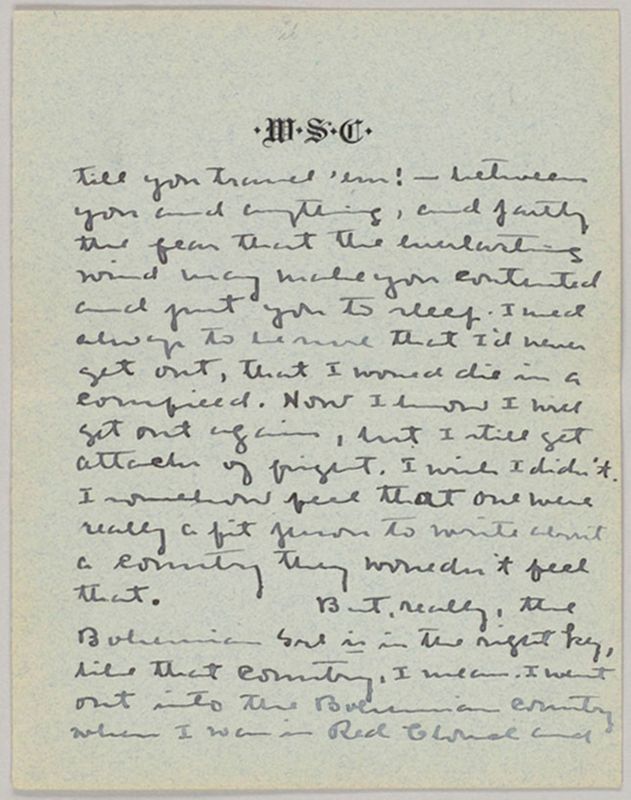 ·W·S·C·
till you travel 'em! — between
you and anything, and partly
the fear that the everlasting
wind may make you contented
and put you to sleep. I used
always to be sure that I'd never
get out, that I would die in a
cornfield. Now I know I will
get out again, but I still get
attacks of fright. I wish I didn't.
I somehow feel that one were
really a fit person to write about
a country they wouldn't feel
that. But, really, the
Bohemian Girl is in the right key,
like that country, I mean. I went
out into the Bohemian country
when I was in Red Cloud and